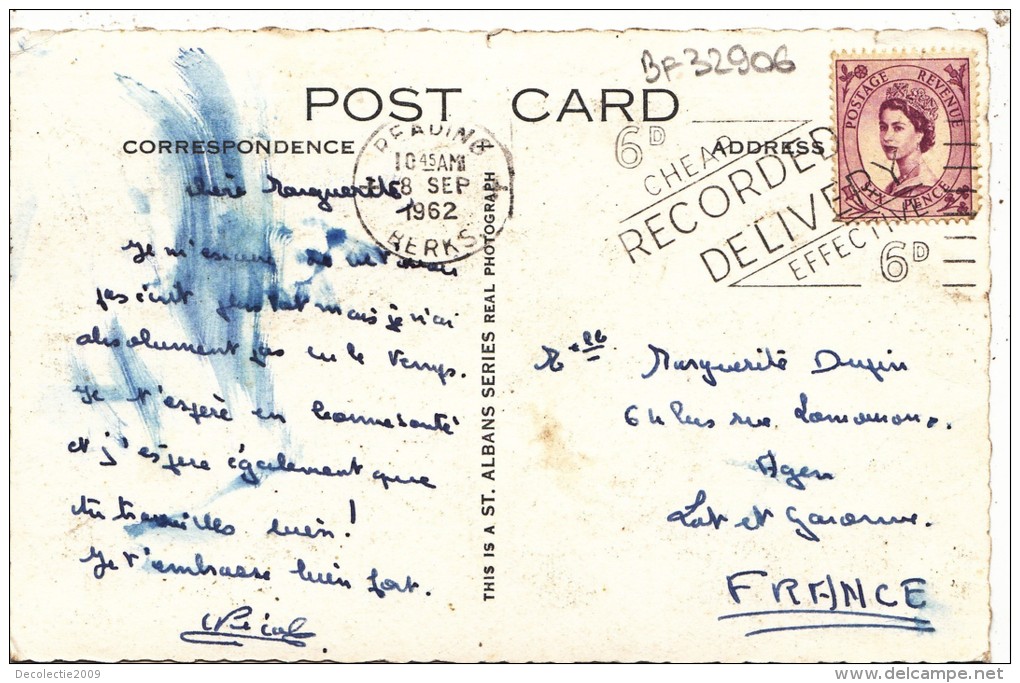 BF 32906
POST CARD
CORRESPONDENCE
ADDRESS
READING
10 45 AM
8 SEP
1962
BERKS
6D
CHEAP
RECORDED
DELIVERY
EFFECTIVE
6D
POSTAGE REVENUE
SIX PENCE
THIS IS A ST. ALBANS SERIES REAL PHOTOGRAPH
chère Marguerite,
Je m'excuse de ne t'avoir
pas écrit plus tôt mais je n'ai
absolument pas eu le temps.
Je t'espère en bonne santé
et j'espère également que
tu travailles bien!
Je t'embrasse bien fort.
Nicole
Mlle Marguerite Dupin
rue Lamouroux.
Agen
Lot et Garonne.
FRANCE
Decolectie2009
delcampe.net